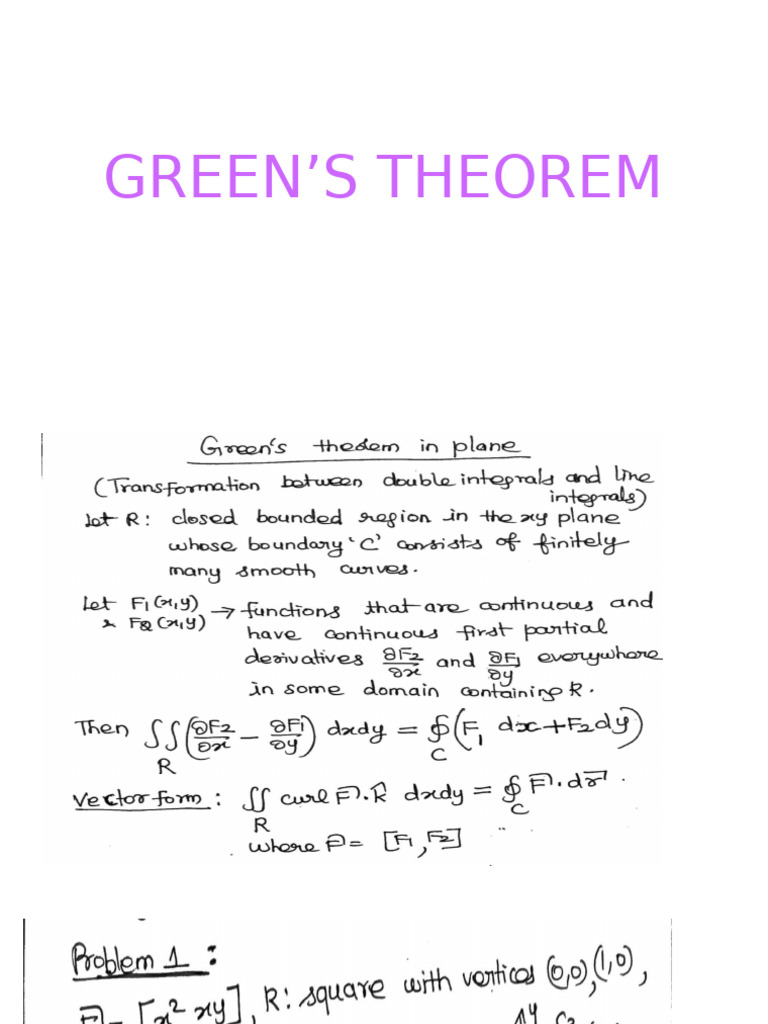 GREEN’S THEOREM
Green's theorem in plane
(Transformation between double integrals and line
integrals)
Let R: closed bounded region in the xy plane
whose boundary 'C' consists of finitely
many smooth curves.
Let F₁(x,y)
& F₂(x,y) → functions that are continuous and
have continuous first partial
derivatives ∂F₂/∂x and ∂F₁/∂y everywhere
in some domain containing R.
Then ∬_R (∂F₂/∂x − ∂F₁/∂y) dxdy = ∮_C (F₁ dx + F₂ dy)
Vector form: ∬_R curl F⃗ · k̂ dxdy = ∮_C F⃗ · dr⃗.
where F⃗ = [F₁, F₂]
Problem 1:
F⃗ = [x² xy], R: square with vertices (0,0), (1,0),
y C₃